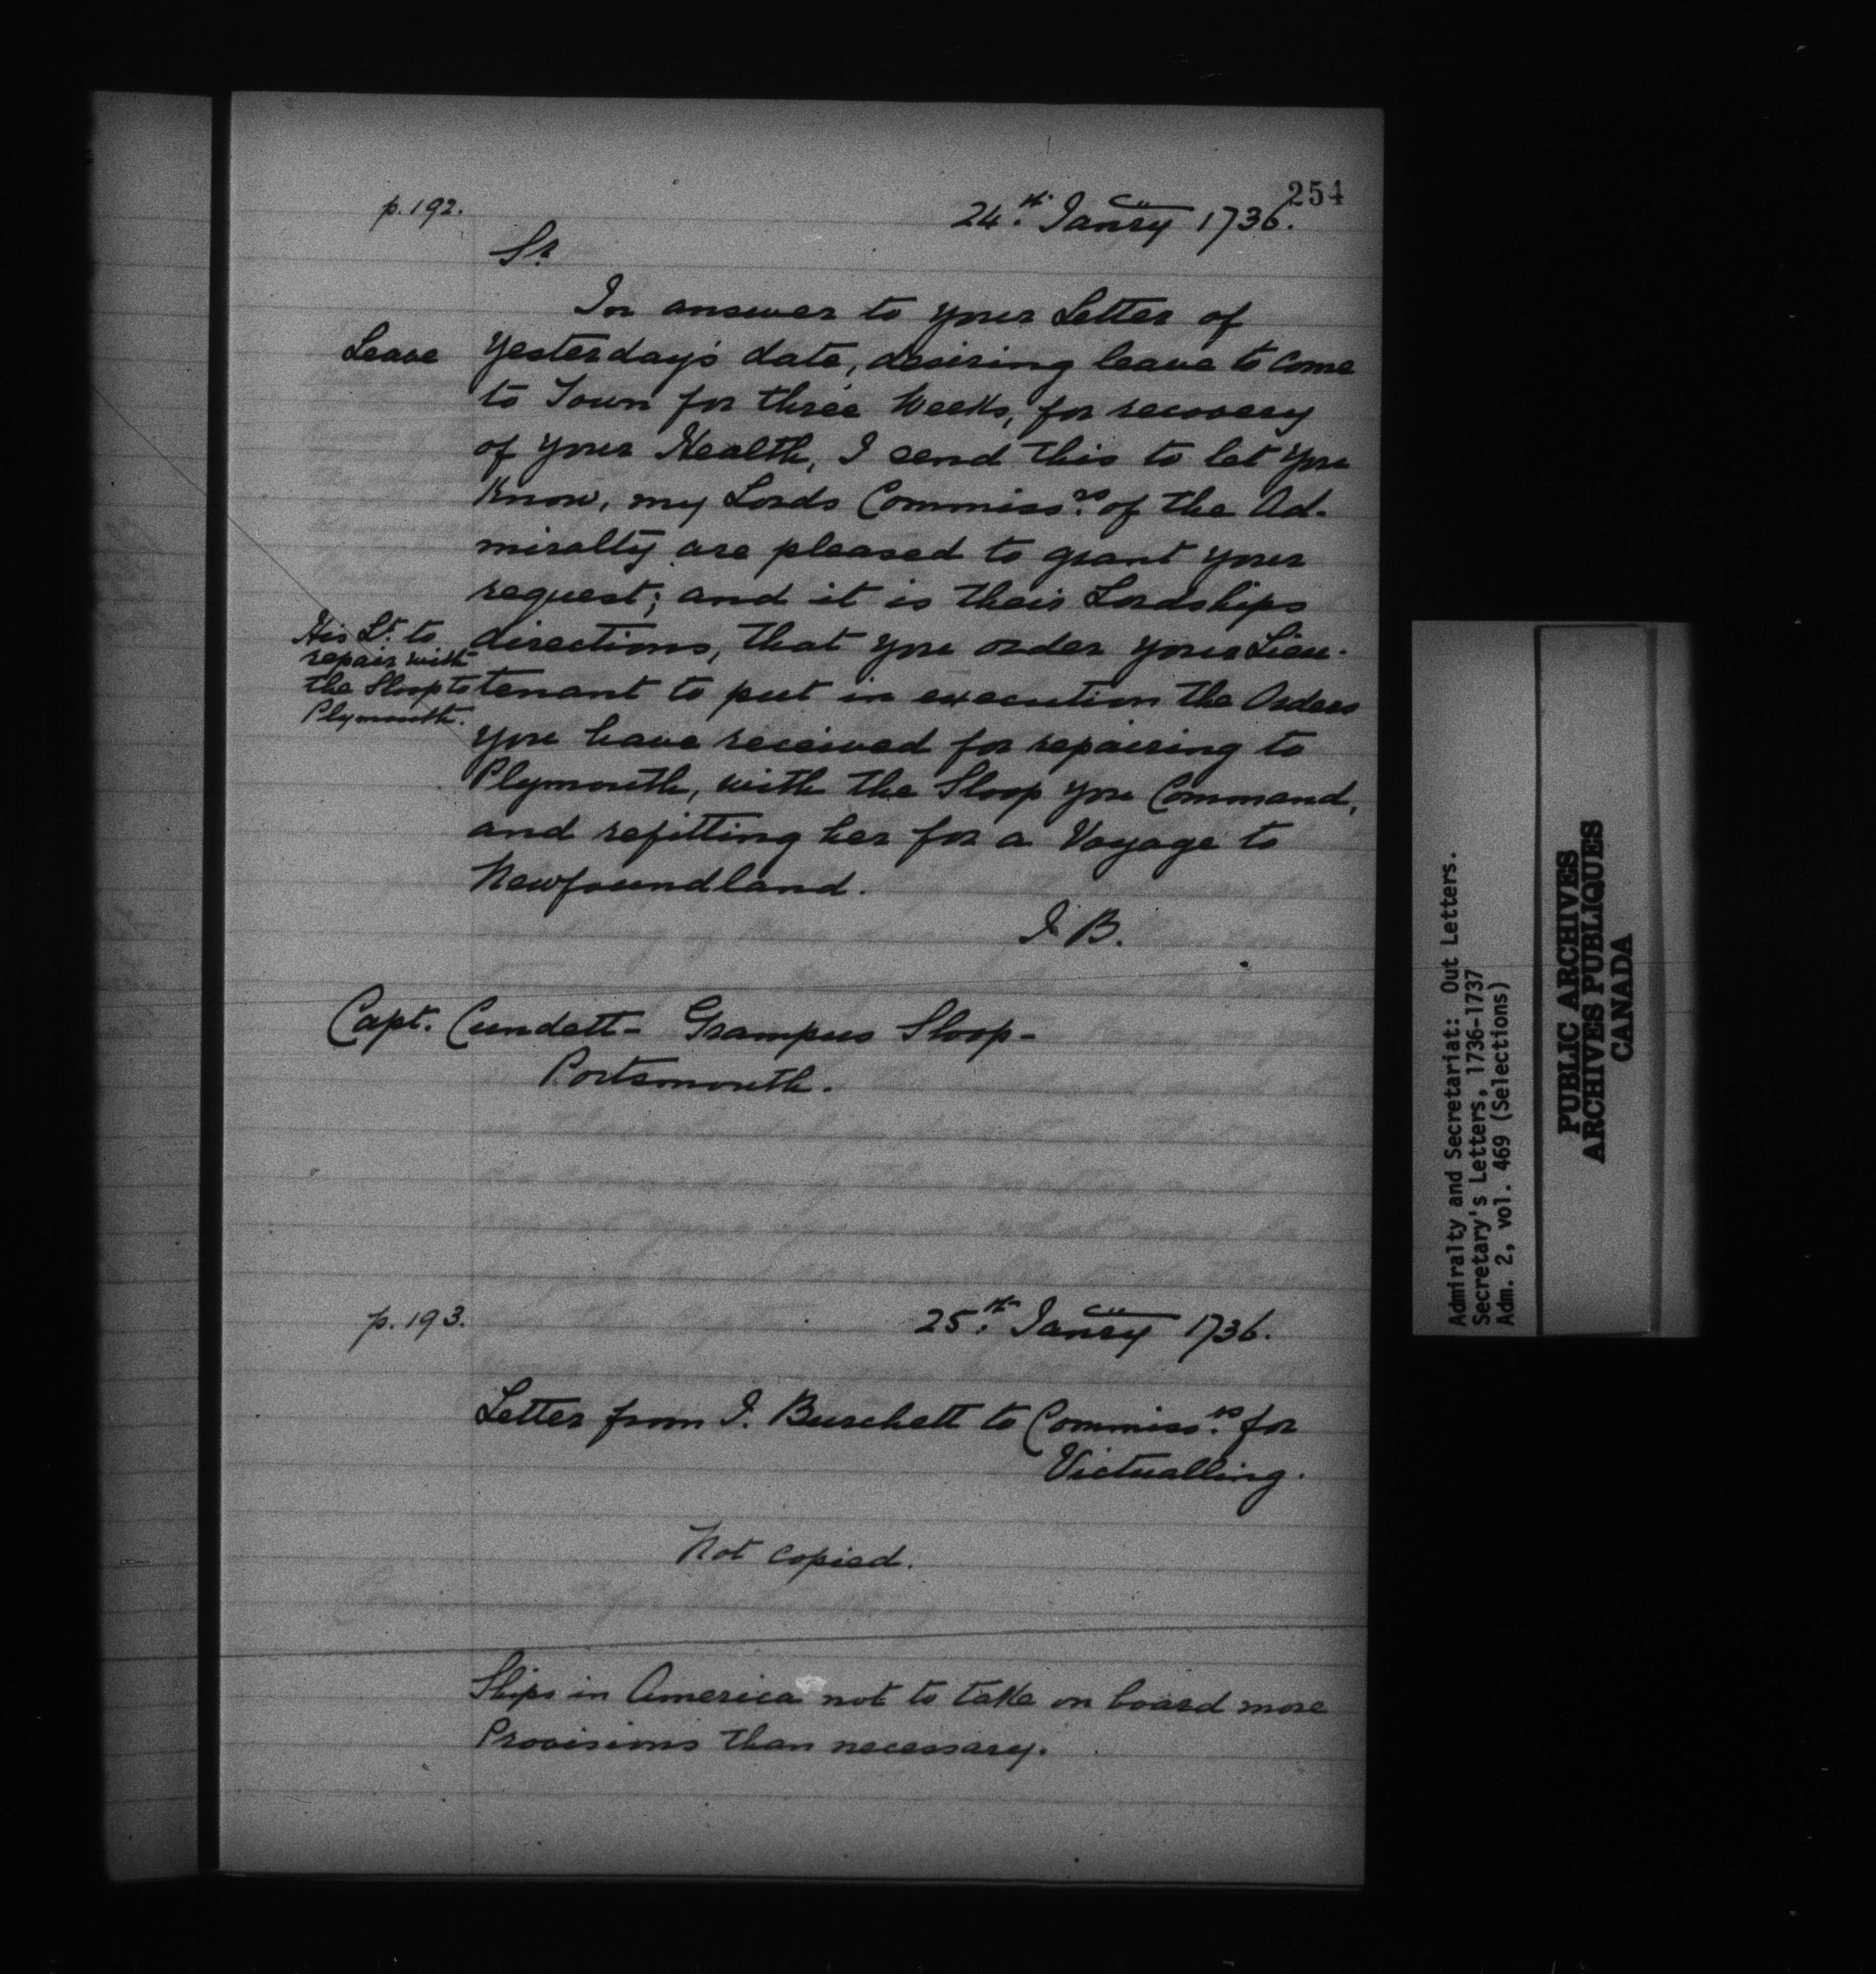 254
p. 192.
24th. Janry 1736.
Sr
In answer to your Letter of
Leave
Yesterday's date, desiring leave to come
to Town for three Weeks, for recovery
of your Health, I send this to let you
Know, my Lords Commissrs. of the Ad-
miralty are pleased to grant your
request; and it is their Lordships
His Lt. to
repair with
the Sloop to
Plymouth.
directions, that you order your Lieu-
tenant to put in execution the Orders
you have received for repairing to
Plymouth, with the Sloop you Command,
and refitting her for a Voyage to
Newfoundland.
J B.
Capt. Cundett - Grampus Sloop -
Portsmouth.
p. 193.
25th. Janry 1736.
Letter from J. Burchett to Commissrs. for
Victualling.
Not copied.
Ships in America not to take on board more
Provisions than necessary.
Admiralty and Secretariat: Out Letters.
Secretary's Letters, 1736-1737
Adm. 2, vol. 469 (Selections)
PUBLIC ARCHIVES
ARCHIVES PUBLIQUES
CANADA